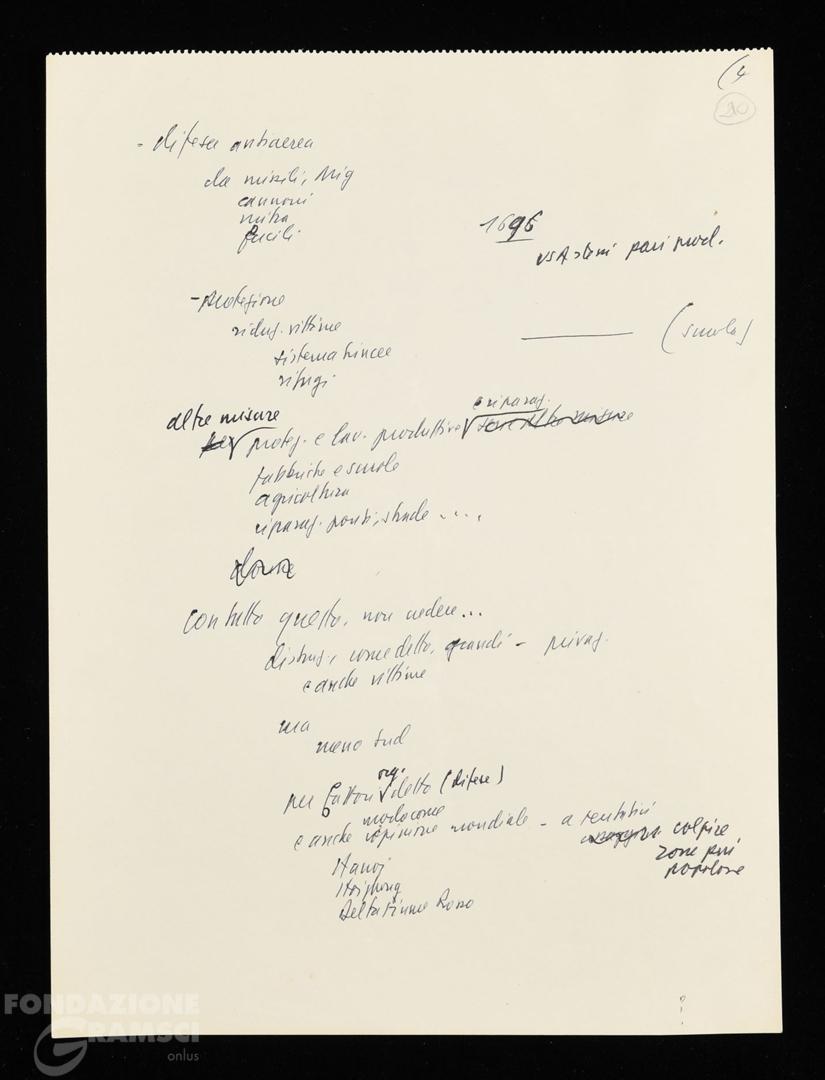 (4
20
- difesa antiaerea
da missili, Mig
cannoni
mitra
fucili
1696
USA stessi pari prod.
- protezione
riduz. vittime
sistema trincee
rifugi
(scuola)
altre misure
e riparaz.
protez. e lav. produttive
fabbriche e scuole
agricoltura
riparaz. ponti, strade ....
con tutto questo, non vedere...
distruz., come detto, grandi - privaz.
e anche vittime
ma
meno sud
org.
per fattori detto (difese)
modo come
e anche opinione mondiale - a tentativi
colpire
zone più
popolose
Hanoj
Haiphong
Delta Fiume Rosso
FONDAZIONE
GRAMSCI
onlus